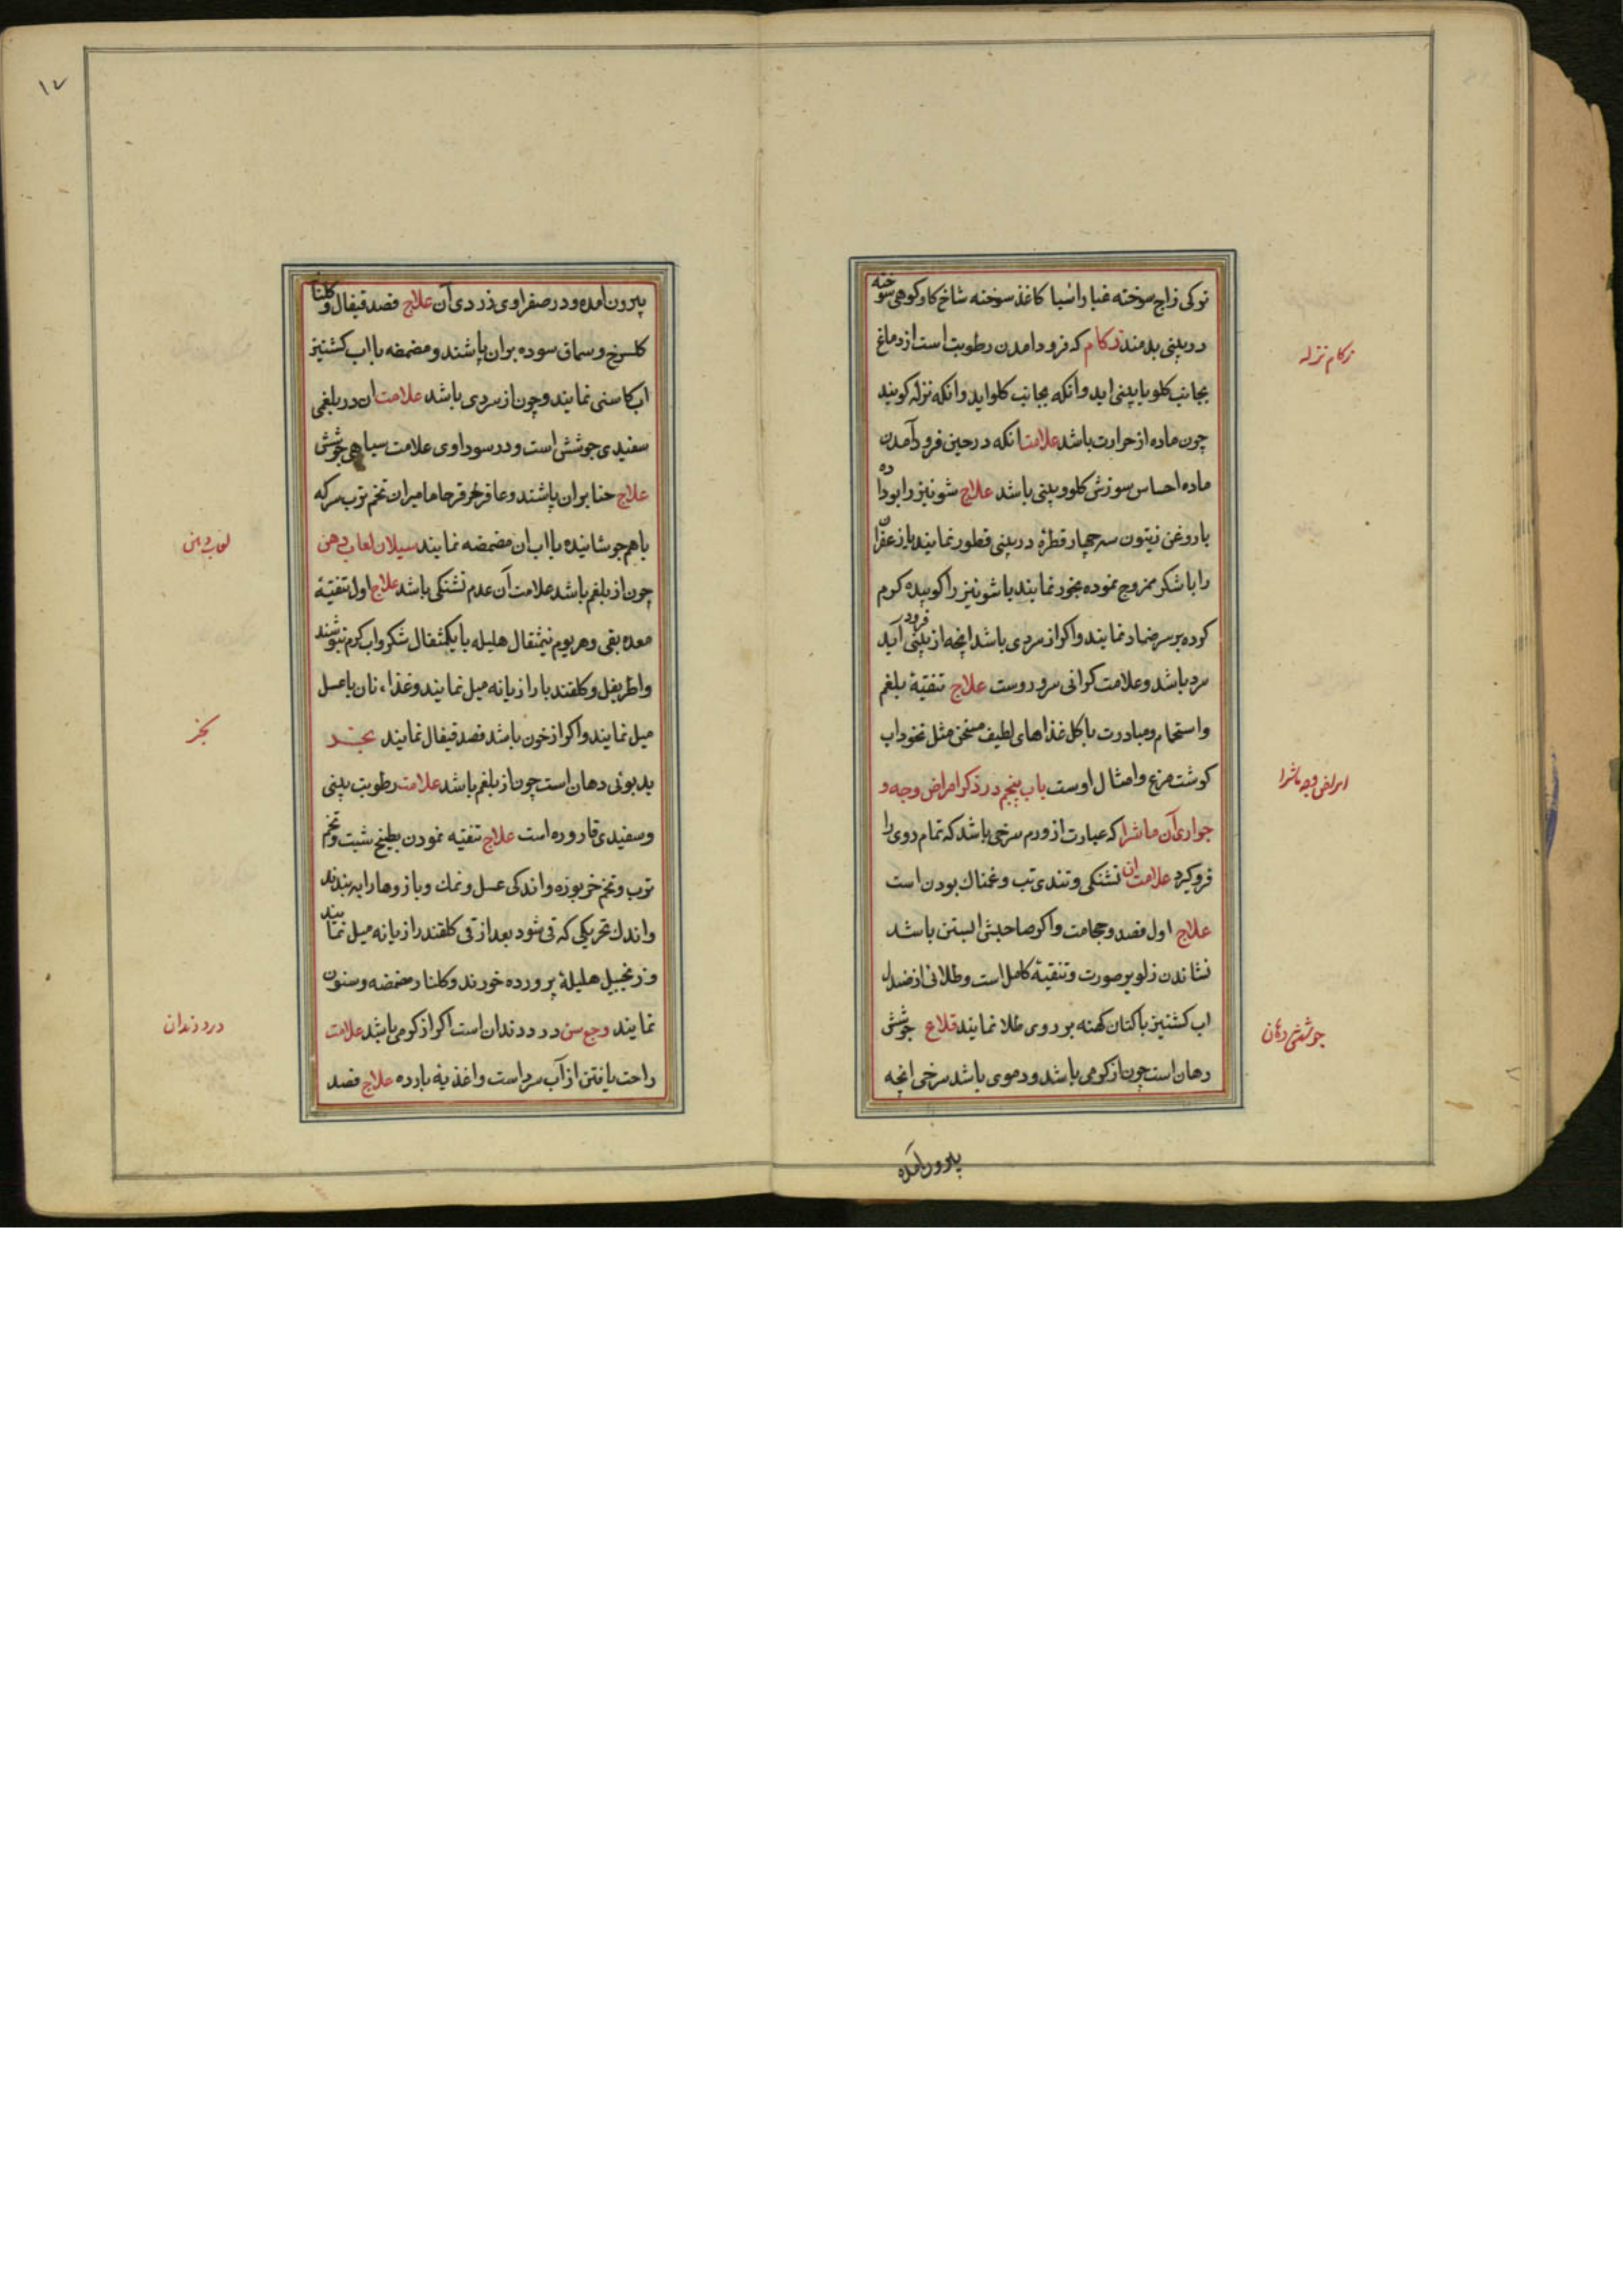 توکی زاج سوخته غبار اسیا کاغذ سوخته شاخ کاو کوهی سوخته
در بینی بدمند زکام که فرود امدن رطوبت است از دماغ
بجانب کلو یا بینی اید وانکه بجانب کلو اید وانکه نزله کویند
چون ماده از حرارت باشد علامت انکه در حین فرود آمدن
ماده احساس سوزش کلو و بینی باشد علاج شونیز را بوداده
با روغن زیتون سه چهار قطرۀ در بینی قطور نمایند یا زعفران
را با شکر ممزوج نموده بخور نمایند یا شونیز را کوبیده کرم
کرده بر سر ضماد نمایند واکر از سردی باشد انچه از بینی فرود آید
سرد باشد وعلامت کرانی سر و روست علاج تنقیۀ بلغم
واستحمام ومبادرت باکل غذاهای لطیف مسخن مثل نخود اب
کوشت مرغ وامثال اوست باب پنجم در ذکر امراض وجه و
جواری آن ماشرا که عبارت از ورم سرخی باشد که تمام روی را
فرو کیرد علامت ان تشنکی وتندی تب وغمناک بودن است
علاج اول فصد وحجامت واکر صاحبش ابستن باشد
نشاندن زلو بر صورت وتنقیۀ کامل است وطلائی از صندل
اب کشنیز با کتان کهنه بر روی طلا نمایند قلاع جوشش
دهان است چون از کرمی باشد ودموی باشد سرخی انچه
بیرون آمده
زکام نزله
امراض وجه ماشرا
جوشش دهان
۱۷
بیرون امده ودر صفراوی زردی آن علاج فصد قیفال و کلنار
کلسرخ وسماق سوده بران پاشند ومضمضه با اب کشنیز
اب کاسنی نمایند وچون از سردی باشد علامت ان در بلغمی
سفیدی جوشش است ودر سوداوی علامت سیاهی جوشش
علاج حنا بران پاشند وعاقرقرحا مامیران تخم ترب سرکه
با هم جوشانیده با اب ان مضمضه نمایند سیلان لعاب دهن
چون از بلغم باشد علامت آن عدم تشنکی باشد علاج اول تنقیۀ
معده بقی وهر یوم نیمثقال هلیله با یکمثقال شکر واب کرم بنوشند
واطریفل وکلقند با رازیانه میل نمایند وغذاء نان با عسل
میل نمایند واکر از خون باشد فصد قیفال نمایند بخر
بدبوئی دهان است چون از بلغم باشد علامت رطوبت بینی
وسفیدی قاروره است علاج تنقیه نمودن بطبخ شبت وتخم
ترب وتخم خربوزه واندکی عسل ونمک وبازوها را به بندند
واندک تحریکی که قی شود بعد از قی کلقند رازیانه میل نمایند
وزنجبیل هلیلۀ پرورده خورند وکلنار مضمضه وسنون
نمایند وجع سن درد دندان است اکر از کرمی باشد علامت
راحت یافتن از آب سرد است واغذیۀ بارده علاج فصد
لعاب دهن
بخر
درد دندان